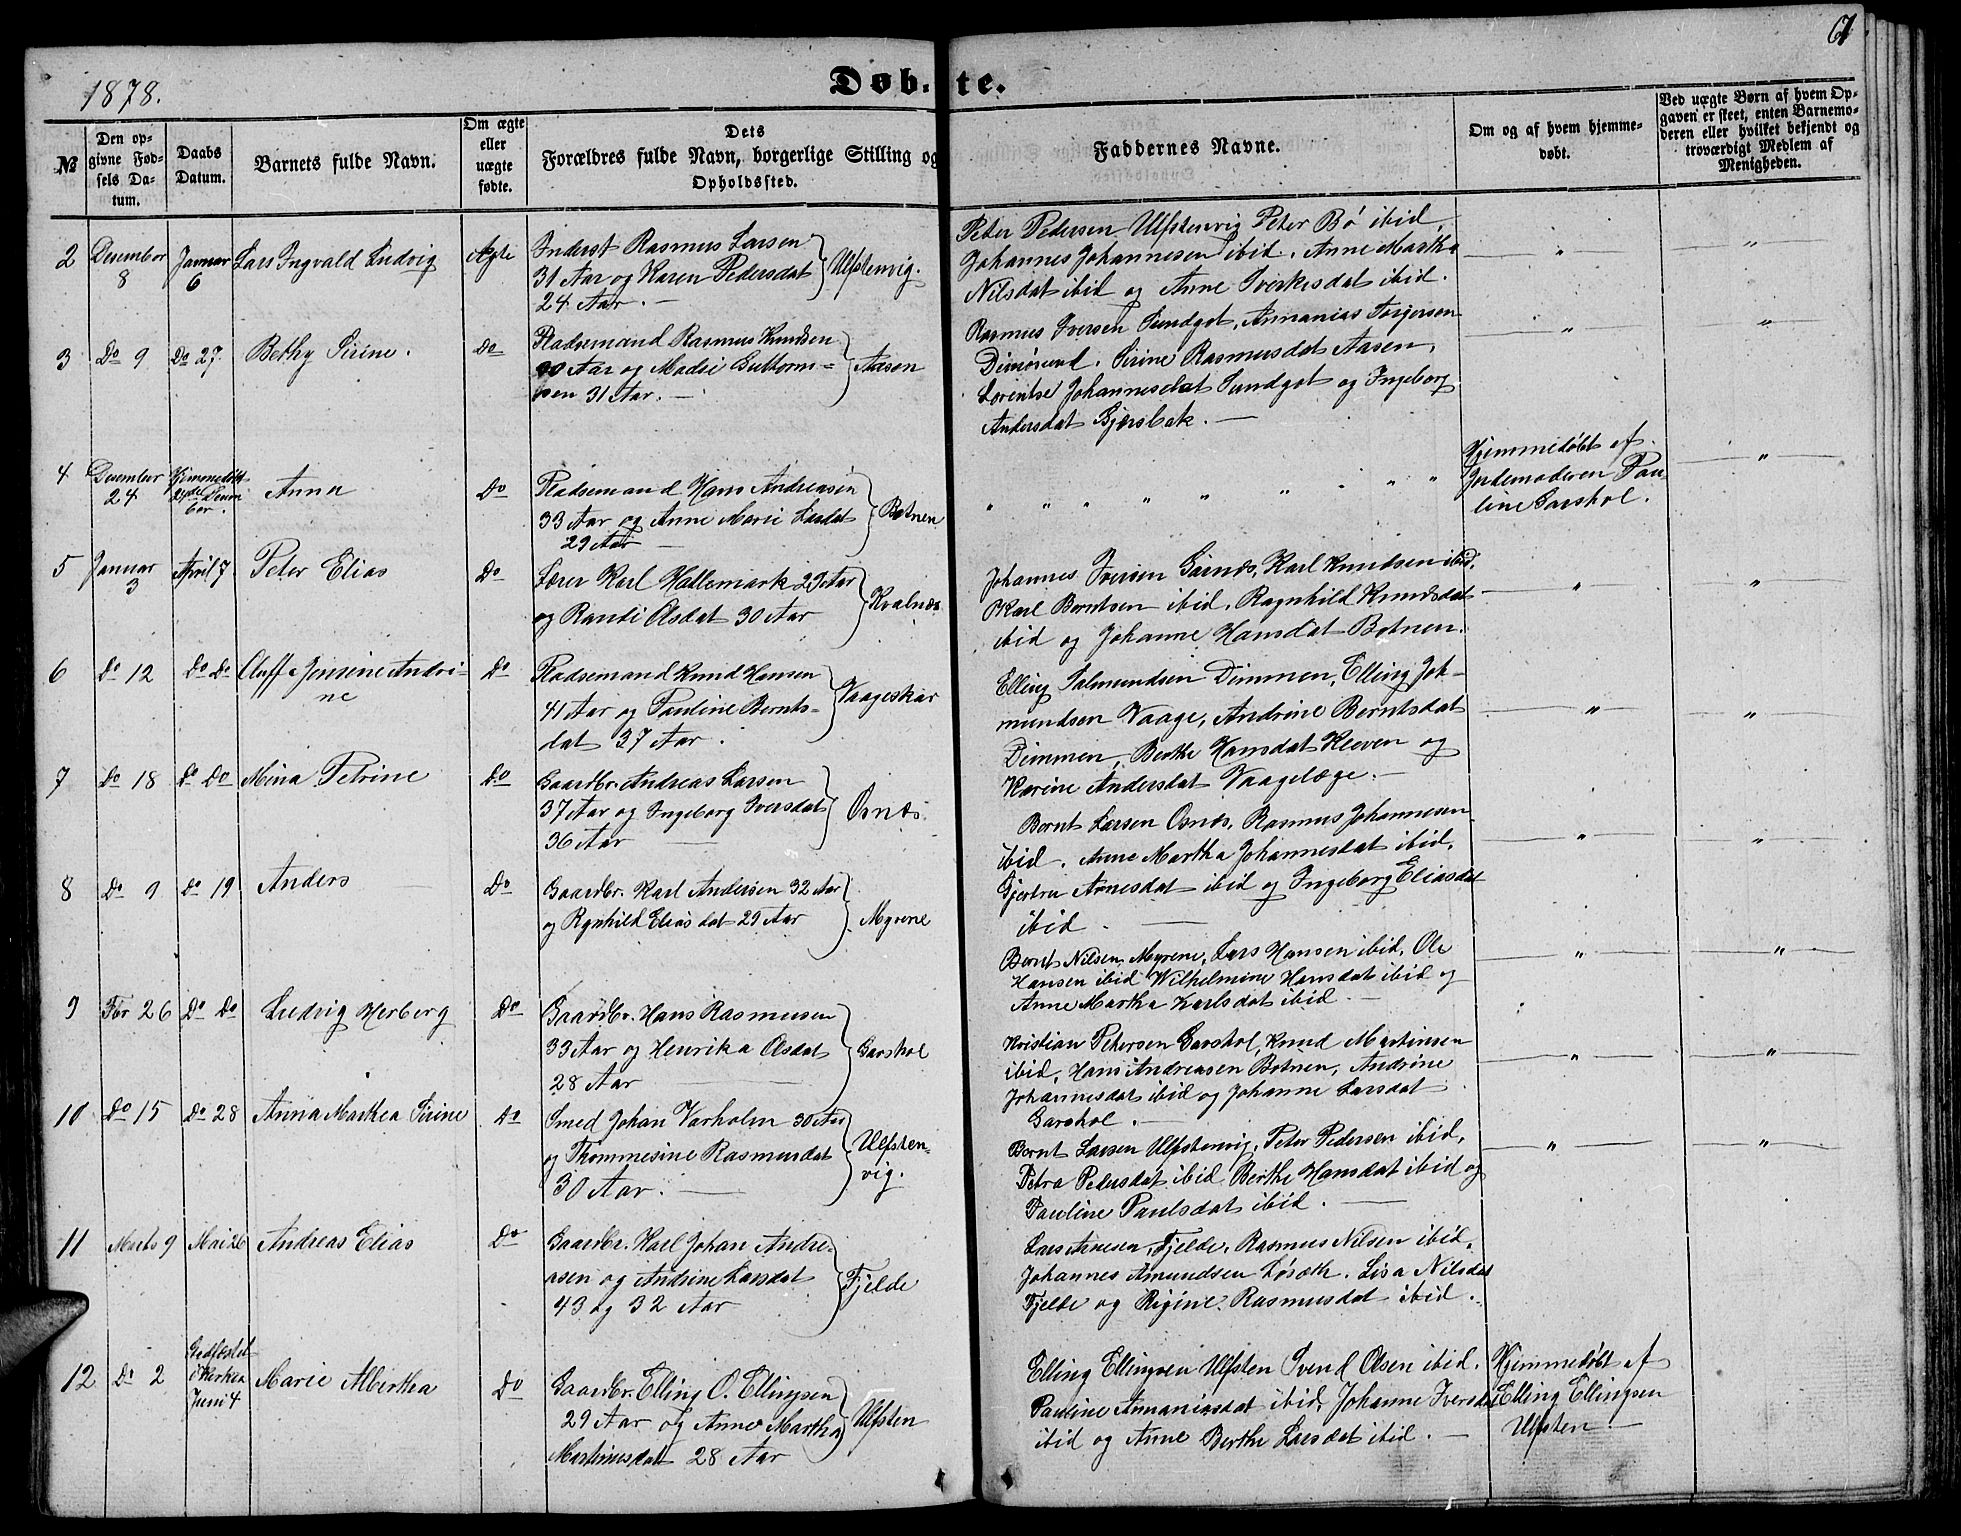 1878.
Døbte.
61
№
Den opgivne Fødsels Datum.
Daabs Datum.
Barnets fulde Navn.
Om ægte eller uægte fødte.
Dets Forældres fulde Navn, borgerlige Stilling og Opholdssted.
Faddernes Navne.
Om og af hvem hjemmedøbt.
Ved uægte Børn af hvem Opgaven er skeet, enten Barnemoderen eller hvilket bekjendt og troværdigt Medlem af Menigheden.
2 Desember 8 Januar 6 Lars Ingvald Ludvig Ægte
Inderst Rasmus Larsen
31 Aar og Karen Pedersdat
24 Aar. —
Ulfstenvig.
Peter Pedersen Ulfstenvig Peter Bø ibid,
Johannes Johannesen ibid, Anne Martha
Nilsdat ibid og Anne Sverkesdat ibid.
3 Do 9 Do 27 Bethy Sirine. Do
Pladsemand Rasmus Knudsen
Aar og Madsi Guttorms=
sen 31 Aar. —
Aasen
Rasmus Iversen Sundgot, Annanias Torgersen
Dimøsund, Sirine Rasmusdat Aasen,
Lorentse Johannesdat Sundgot og Ingeborg
Andersdat Gjersbak. —
4 Desember 24 Hjemmedøbt 24de Desember. Anna Do
Pladsemand Hans Andreasen
33 Aar og Anne Marie Larsdat
29 Aar —
Botnen
Hjemmedøbt af
Jordemoderen Pau-
line Garshol.
5 Januar 3 April 7 Peter Elias Do
Lærer Karl Hallemark 29 Aar
og Randi Olsdat 30 Aar
Kvalnes
Johannes Iversen Garnes, Karl Knudsen ibid,
Karl Berntsen ibid, Ragnhild Knudsdat
ibid og Johanne Hansdat Botnen.
6 Do 12 Do Do Oluffa Jensine Andri-
ne Do
Pladsemand Knud Hansen
41 Aar og Pauline Bernts-
dat 37 Aar.
Vaageskar
Elling Salmundsen Dimmen, Elling Joh-
mundsen Vaage, Andrine Berntsdat
Dimmen, Berthe Hansdat Kleven og
Karine Andersdat Vaagelæge. —
7 Do 18 Do Do Mina Petrine Do
Gaardbr. Andreas Larsen
37 Aar og Ingeborg Iversdat
36 Aar —
Osnes
Bernt Larsen Osnes, Rasmus Johannesen
ibid, Anne Martha Johannesdat ibid,
Gjertru Arnesdat ibid og Ingeborg Eliasdat
ibid. —
8 Do 9 Do 19 Anders Do
Gaardbr. Karl Andersen 32 Aar
og Rgnhild Eliasdat 29 Aar
Myrene
Bernt Nilsen Myrene, Lars Hansen ibid, Ole
Hansen ibid Wilhelmine Hansdat ibid og
Anne Martha Karlsdat ibid —
9 Fbr 26 Do Do Ludvig Herberg Do
Gaardbr. Hans Rasmusen
33 Aar og Henrika Olsdat
28 Aar —
Garshol
Kristian Petersen Garshol, Knud Martinsen
ibid, Hans Andreasen Botnen, Andrine
Johannesdat ibid og Johanne Larsdat
Garshol. —
10 Do 15 Do 28 Anna Marthea Sirine Do
Smed Johan Varholm 30 Aar
og Thommesine Rasmusdat
30 Aar. —
Ulfsten-
vig.
Bernt Larsen Ulfstenvig, Peter Pedersen ibid,
Petra Pedersdat ibid, Berthe Hansdat ibid og
Pauline Paulsdat ibid. —
11 Marts 9 Mai 26 Andreas Elias Do
Gaardbr. Karl Johan Andre-
asen og Andrine Larsdat
43 og 32 Aar
Fjelde
Lars Arnesen, Fjelde, Rasmus Nilsen ibid,
Johannes Amundsen Løseth, Lisa Nilsdat
Fjelde og Rigine Rasmusdat ibid.
12 Do 2 i Kirken Juni 4 Marie Albertha Do
Gaardbr. Elling O. Ellingsen
29 Aar og Anne Martha
Martinusdat 28 Aar
Ulfsten
Elling Ellingsen Ulfsten Svend Olsen ibid,
Pauline Annaniasdat ibid, Johanne Iversdat
ibid og Anne Berthe Larsdat ibid. —
Hjemmedøbt af
Elling Ellingsen
Ulfsten —